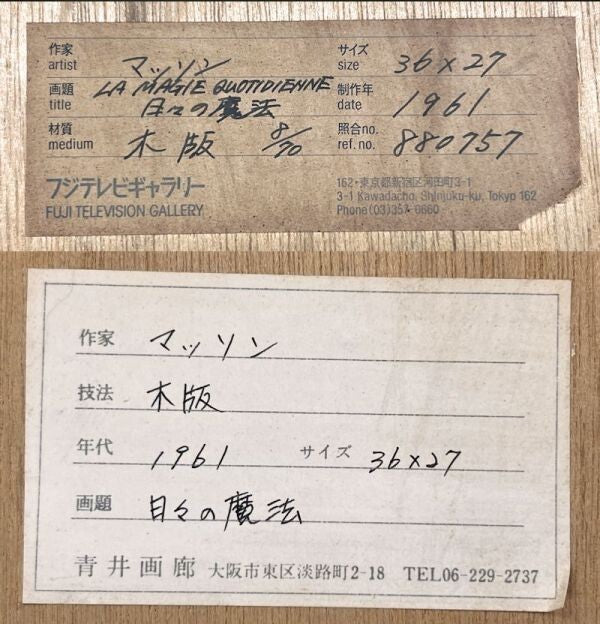 作家 マッソン サイズ 36×27
artist size
画題 LA MAGIE QUOTIDIENNE 制作年 1961
title 日々の魔法 date
材質 木版 8/70 照合no. 880757
medium ref. no.
フジテレビギャラリー 162・東京都新宿区河田町3-1
FUJI TELEVISION GALLERY 3-1 Kawadacho, Shinjuku-ku, Tokyo 162
Phone (03)357-0660
作家 マッソン
技法 木版
年代 1961 サイズ 36×27
画題 日々の魔法
青井画廊 大阪市東区淡路町2-18 TEL06-229-2737